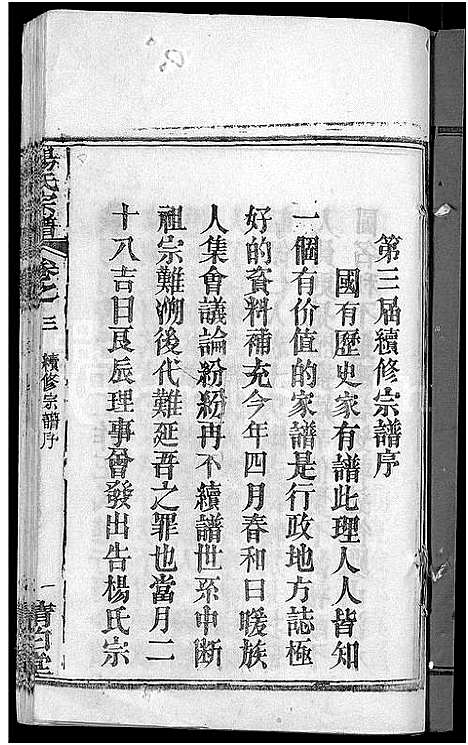 第三届續修宗譜序
國有歷史家有譜此理人人皆知
一個有价值的家譜是行政地方誌極
好的資料補充今年四月春和日暖族
人集會議論紛紛再不續譜世系中断
祖宗難溯後代難延吾之罪也當月二
十八吉日良辰理事會發出告楊氏宗
楊氏宗譜
卷之三
續修宗譜序
一
清白堂